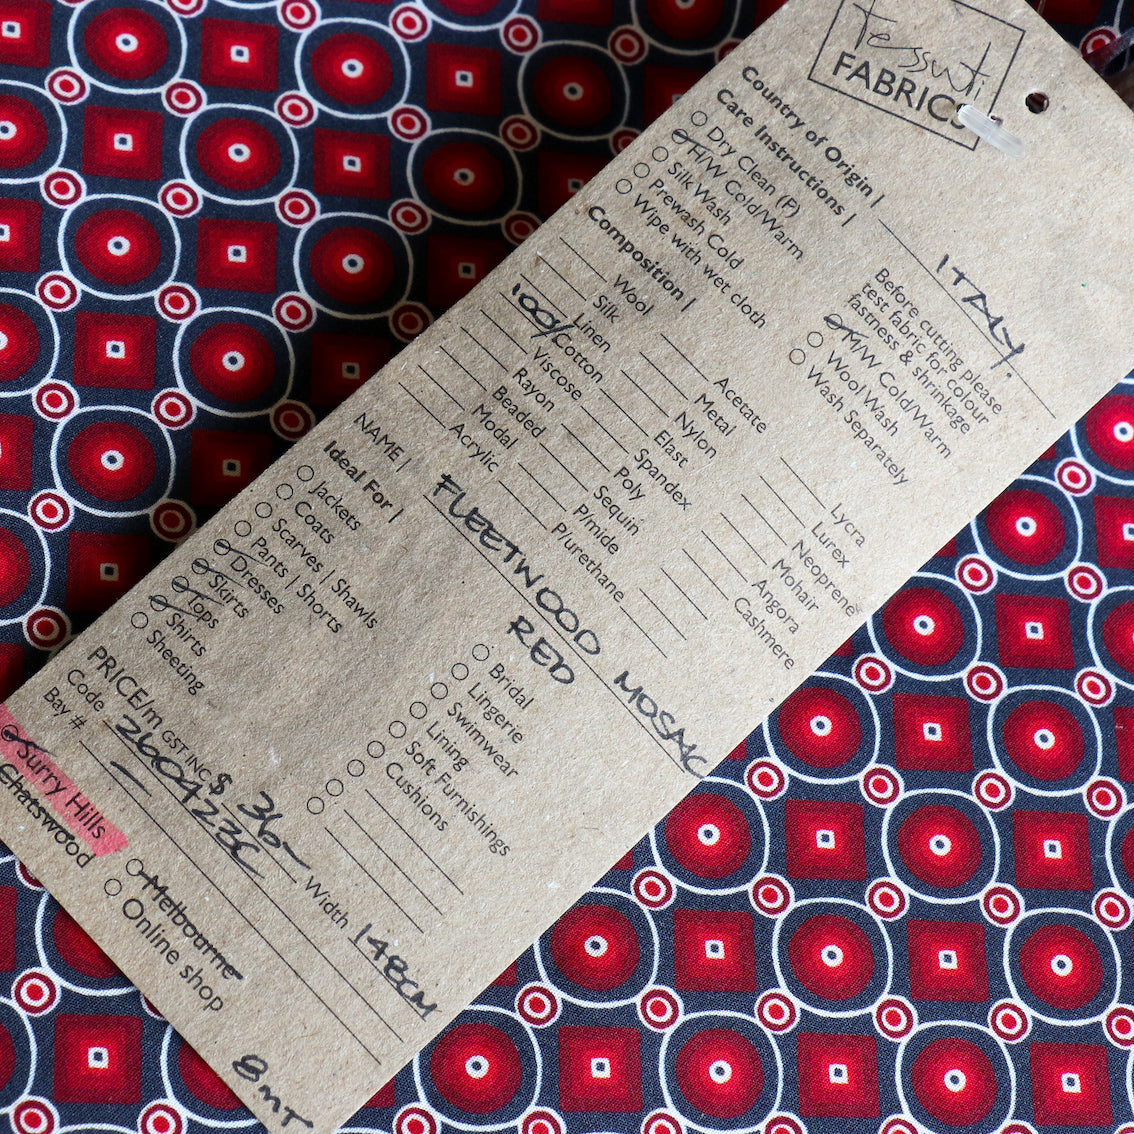 Tessuti
FABRICS
Country of Origin | ITALY.
Care Instructions |
Dry Clean (P)
H/W Cold/Warm
Silk Wash
Prewash Cold
Wipe with wet cloth
Before cutting please
test fabric for colour
fastness & shrinkage
M/W Cold/Warm
Wool Wash
Wash Separately
Composition |
Wool
Silk
Linen
100% Cotton
Viscose
Rayon
Beaded
Modal
Acrylic
Acetate
Metal
Nylon
Elast
Spandex
Poly
Sequin
P/mide
P/urethane
Lycra
Lurex
Neoprene
Mohair
Angora
Cashmere
NAME | FLEETWOOD MOSAIC
RED
Ideal For |
Jackets
Coats
Scarves | Shawls
Pants | Shorts
Dresses
Skirts
Tops
Shirts
Sheeting
Bridal
Lingerie
Swimwear
Lining
Soft Furnishings
Cushions
PRICE/m GST INC. $ 36- Width 148CM
Code 2604223C
Bay #
Surry Hills
Chatswood
Melbourne
Online shop
8mT